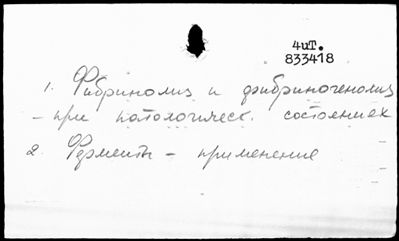 4иТ.
833418
1. Фибринолиз и фибриногенолиз
- при патологическ. состояниях
2. Ферменты - применение